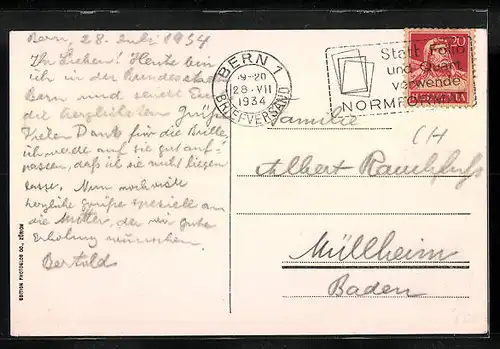 Bern, 28. Juli 1934
Ihr Lieben! Heute bin
ich in der Bundesstadt
Bern und seinet Euch
die herzlichsten Grüße
Vielen Dank für die Brille,
ich werde auf sie gut auf-
passen, daß ich sie nicht liegen
lasse. Nun nochmals
herzliche Grüße speziell an
die Mutter, der wir gute
Erholung wünschen.
Bertold
EDITION PHOTOGLOB CO., ZÜRICH
BERN 1
19-20
28·VII
1934
BRIEFVERSAND
Statt Folio
und Quart
verwende
NORMFORMAT
20
HELVETIA
Familie
Albert Rauchfuß
Müllheim
Baden
CH